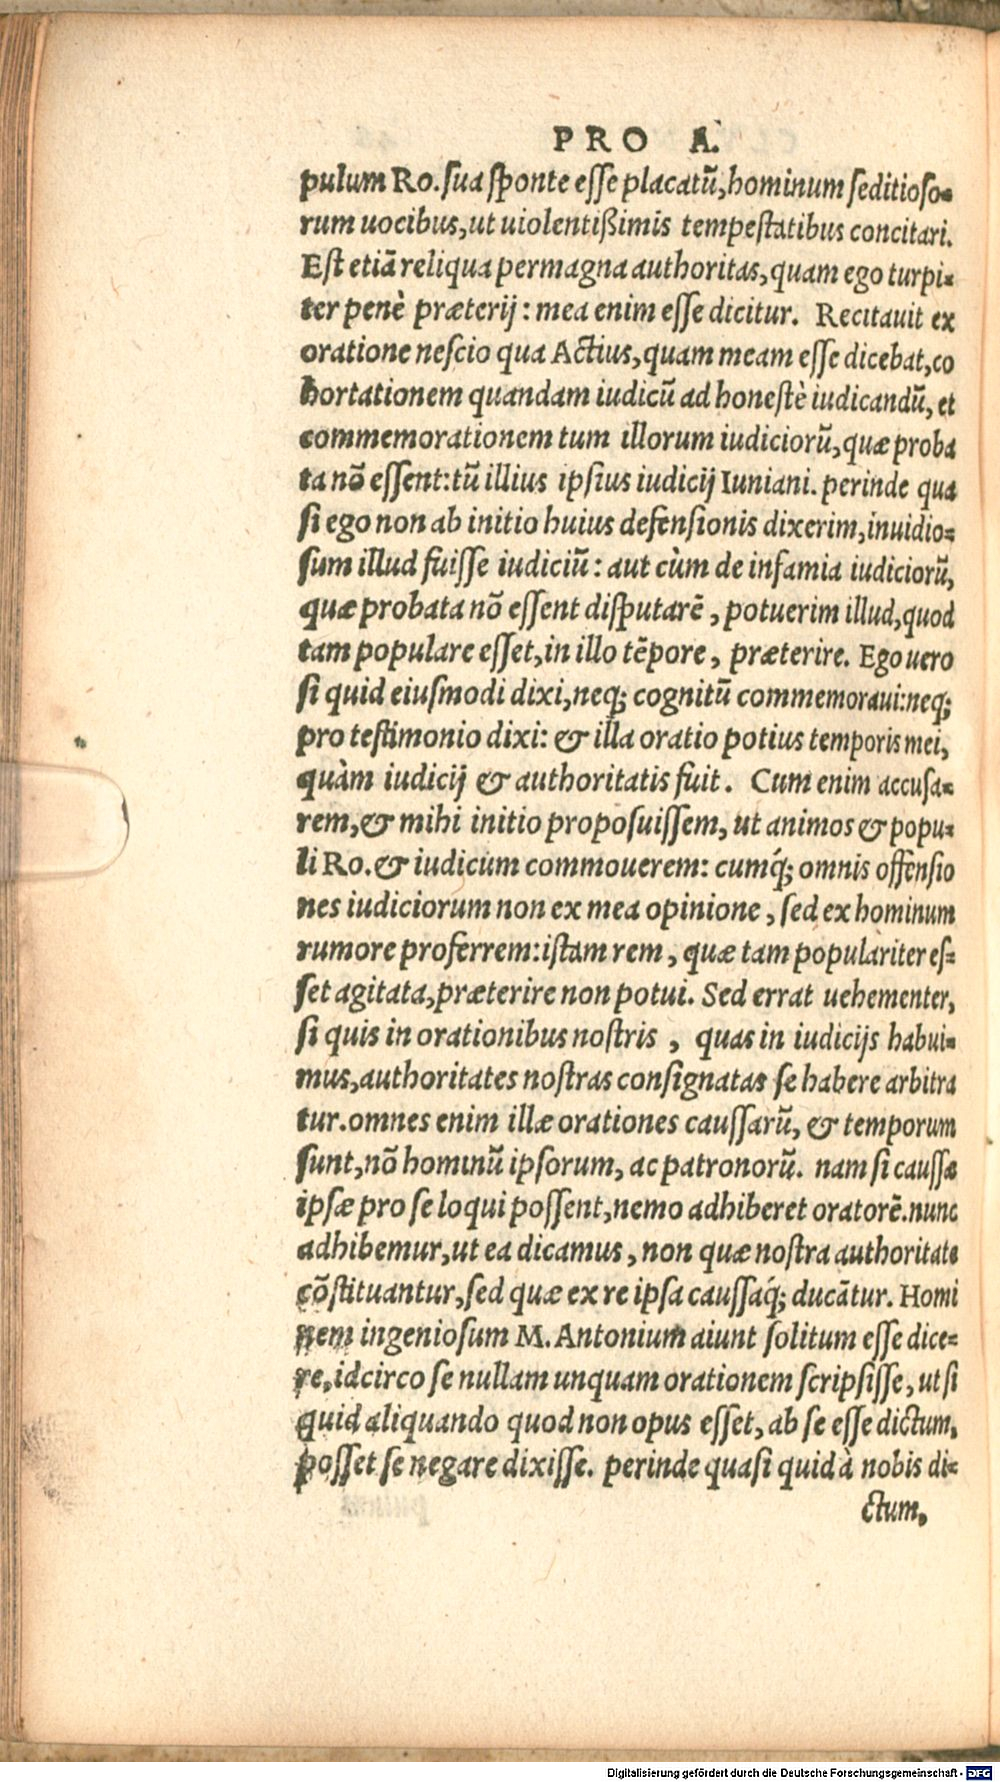 PRO A.
pulum Ro. sua sponte esse placatũ, hominum seditioso-
rum uocibus, ut uiolentißimis tempestatibus concitari.
Est etiã reliqua permagna authoritas, quam ego turpi-
ter penè præterij: mea enim esse dicitur. Recitauit ex
oratione nescio qua Actius, quam meam esse dicebat, co
hortationem quandam iudicũ ad honestè iudicandũ, et
commemorationem tum illorum iudiciorũ, quæ proba
ta nõ essent: tũ illius ipsius iudicij Iuniani. perinde qua
si ego non ab initio huius defensionis dixerim, inuidio-
sum illud fuisse iudiciũ: aut cùm de infamia iudiciorũ,
quæ probata nõ essent disputarẽ, potuerim illud, quod
tam populare esset, in illo tẽpore, præterire. Ego uero
si quid eiusmodi dixi, neq; cognitũ commemoraui: neq;
pro testimonio dixi: & illa oratio potius temporis mei,
quàm iudicij & authoritatis fuit. Cum enim accusa-
rem, & mihi initio proposuissem, ut animos & popu-
li Ro. & iudicum commouerem: cumq́; omnis offensio
nes iudiciorum non ex mea opinione, sed ex hominum
rumore proferrem: istam rem, quæ tam populariter es-
set agitata, præterire non potui. Sed errat uehementer,
si quis in orationibus nostris, quas in iudicijs habui-
mus, authoritates nostras consignatas se habere arbitra
tur. omnes enim illæ orationes caussarũ, & temporum
sunt, nõ hominũ ipsorum, ac patronorũ. nam si caussæ
ipsæ pro se loqui possent, nemo adhiberet oratorẽ. nunc
adhibemur, ut ea dicamus, non quæ nostra authoritate
cõstituantur, sed quæ ex re ipsa caussaq́; ducãtur. Homi
nem ingeniosum M. Antonium aiunt solitum esse dice-
re, idcirco se nullam unquam orationem scripsisse, ut si
quid aliquando quod non opus esset, ab se esse dictum,
posset se negare dixisse. perinde quasi quid à nobis di-
ctum,
Digitalisierung gefördert durch die Deutsche Forschungsgemeinschaft - DFG